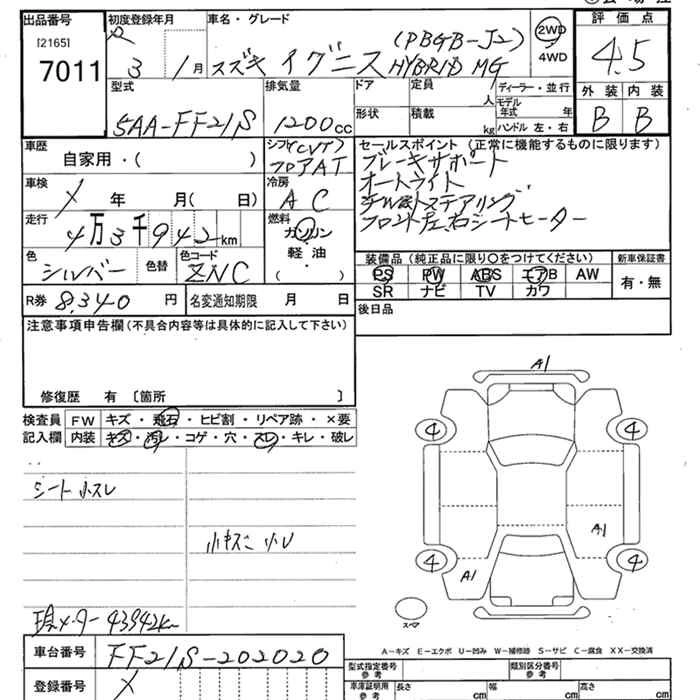 出品番号
[2165]
7011
初度登録年月
R 3 / 1 月
車名・グレード
(PBGB-J2)
スズキ イグニス HYBRID MG
2WD
4WD
評価点
4.5
型式
5AA-FF21S
排気量
1200cc
ドア
定員
人
形状
積載
kg
ディーラー・並行
モデル年式 年
ハンドル 左・右
外装 内装
B B
車歴
自家用・( )
シフト(CVT)
フロアAT
冷房
AC
車検
X 年 月( 日)
走行
4万3千942km
燃料
ガソリン
軽油
( )
色
シルバー
色替
色コード
ZNC
R券 8,340 円
名変通知期限 月 日
セールスポイント(正常に機能するものに限ります)
ブレーキサポート
オートライト
チルトステアリング
フロント左右シートヒーター
装備品(純正品に限り○をつけてください)
新車保証書
PS PW ABS エアB AW
SR ナビ TV カワ
有・無
後日品
注意事項申告欄(不具合内容等は具体的に記入して下さい)
修復歴 有〔箇所 〕
検査員記入欄
FW キズ・飛石・ヒビ割・リペア跡・×要
内装 キズ・汚レ・コゲ・穴・スレ・キレ・破レ
シート小スレ
小キズ 小
現メーター 43942km
A1
4 4
A1
4 4
A1
スペア
A-キズ E-エクボ U-凹み W-補修跡 S-サビ C-腐食 XX-交換済
車台番号 FF21S-202020
登録番号 X
型式指定番号 参考
類別区分番号 参考
車庫証明用 参考
長さ cm
幅 cm
高さ cm